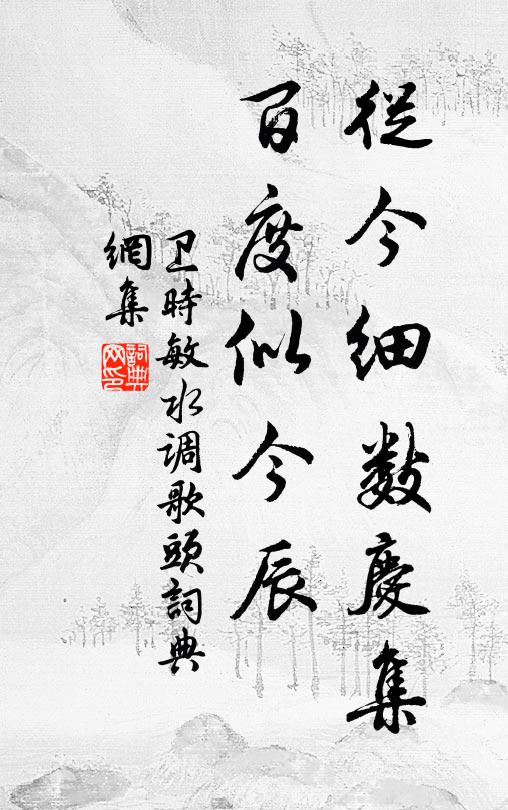 從今細數慶集
百度似今辰
卫時敏水调歌頭詞典
網集
詞典
网印